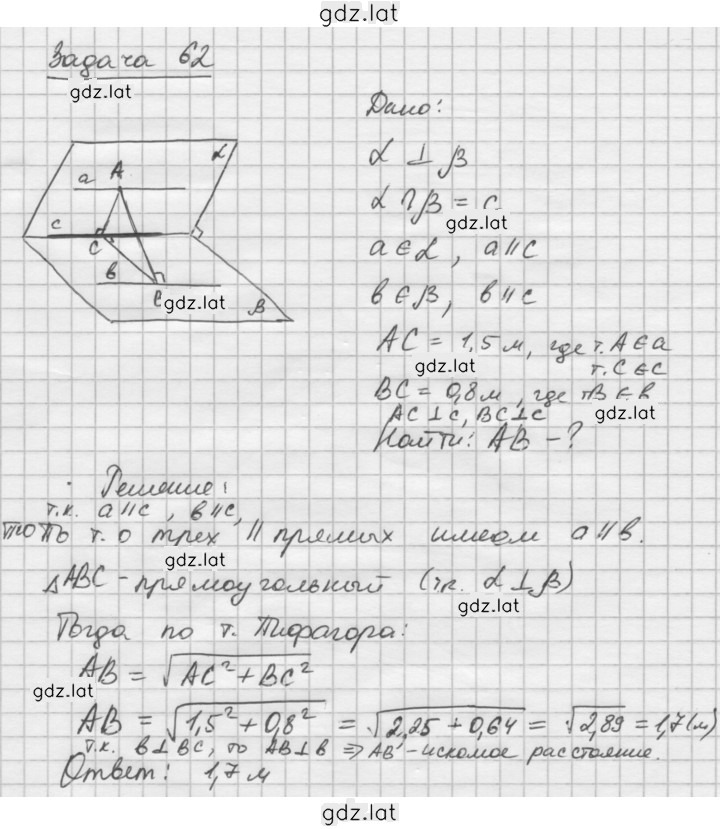 gdz.lat
Задача 62
gdz.lat
Дано:
α ⊥ β
α ∩ β = c
gdz.lat
a ∈ α, a ∥ c
b ∈ β, b ∥ c
AC = 1,5 м, где т. A ∈ a
gdz.lat
т. C ∈ c
BC = 0,8 м, где т. B ∈ b
gdz.lat
AC ⊥ c, BC ⊥ c
Найти: AB - ?
α
a
A
c
C
b
B
gdz.lat
β
Решение:
т.к. a ∥ c, b ∥ c,
то по т. о трех ∥ прямых имеем a ∥ b.
gdz.lat
△ABC - прямоугольный (т.к. α ⊥ β)
gdz.lat
Тогда по т. Пифагора:
AB = √AC² + BC²
gdz.lat
AB = √1,5² + 0,8² = √2,25 + 0,64 = √2,89 = 1,7 (м)
т.к. b ⊥ BC, то AB ⊥ b ⇒ AB - искомое расстояние.
Ответ: 1,7 м
gdz.lat